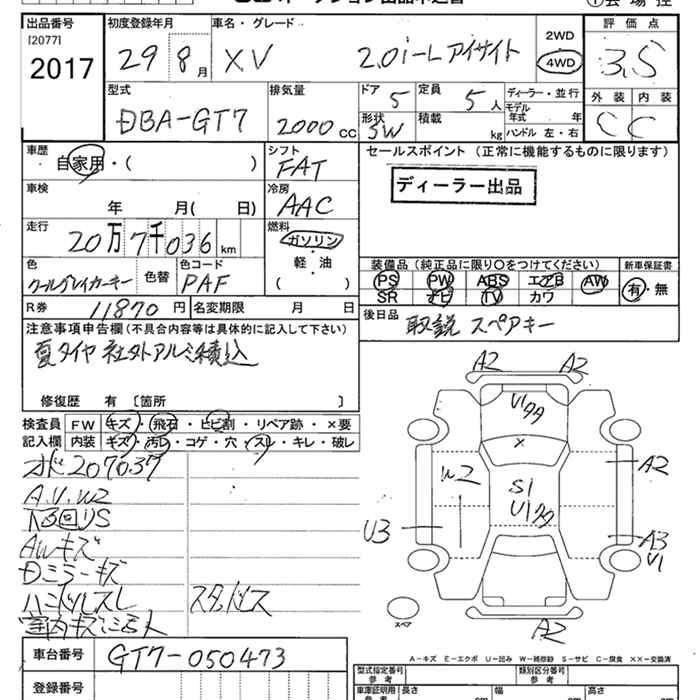 出品番号
[2077]
2017
初度登録年月
29年 8月
車名・グレード
XV 2.0i-L アイサイト
2WD
4WD
評価点
3.5
型式
DBA-GT7
排気量
2000 CC
ドア
5
定員
5 人
形状
5W
積載
kg
ディーラー・並行
モデル年式 年
ハンドル 左・右
外装 内装
C C
車歴
自家用・( )
シフト
FAT
セールスポイント (正常に機能するものに限ります)
ディーラー出品
車検
年 月( 日)
冷房
AAC
走行
20万7千036km
燃料
ガソリン
軽・油
( )
色
クールグレイカーキー
色替
色コード
PAF
装備品 (純正品に限り○をつけてください)
PS PW ABS エアB AW
SR ナビ TV カワ
新車保証書
有・無
R券 11870円
名変期限 月 日
後日品
取説 スペアキー
注意事項申告欄(不具合内容等は具体的に記入して下さい)
夏タイヤ 社外アルミ積込
修復歴 有 〔箇所 〕
検査員記入欄
FW キズ・飛石・ヒビ割・リペア跡・×要
内装 キズ・汚レ・コゲ・穴・スレ・キレ・破レ
メ 207037
A.U.W2
下回りS
AWキズ
Dミラーキズ
ハンドルスレ
スタッドレス
室内キズ
A2 A2
U1タタ
×
W2
S1
U1タタ
A2
U3
A3
U1
A2
スペア
A-キズ E-エクボ U-凹み W-補修跡 S-サビ C-腐食 XX-交換済
車台番号
GT7-050473
登録番号
型式指定番号 参考
類別区分番号 参考
車庫証明用 参考
長さ cm
幅 cm
高さ cm